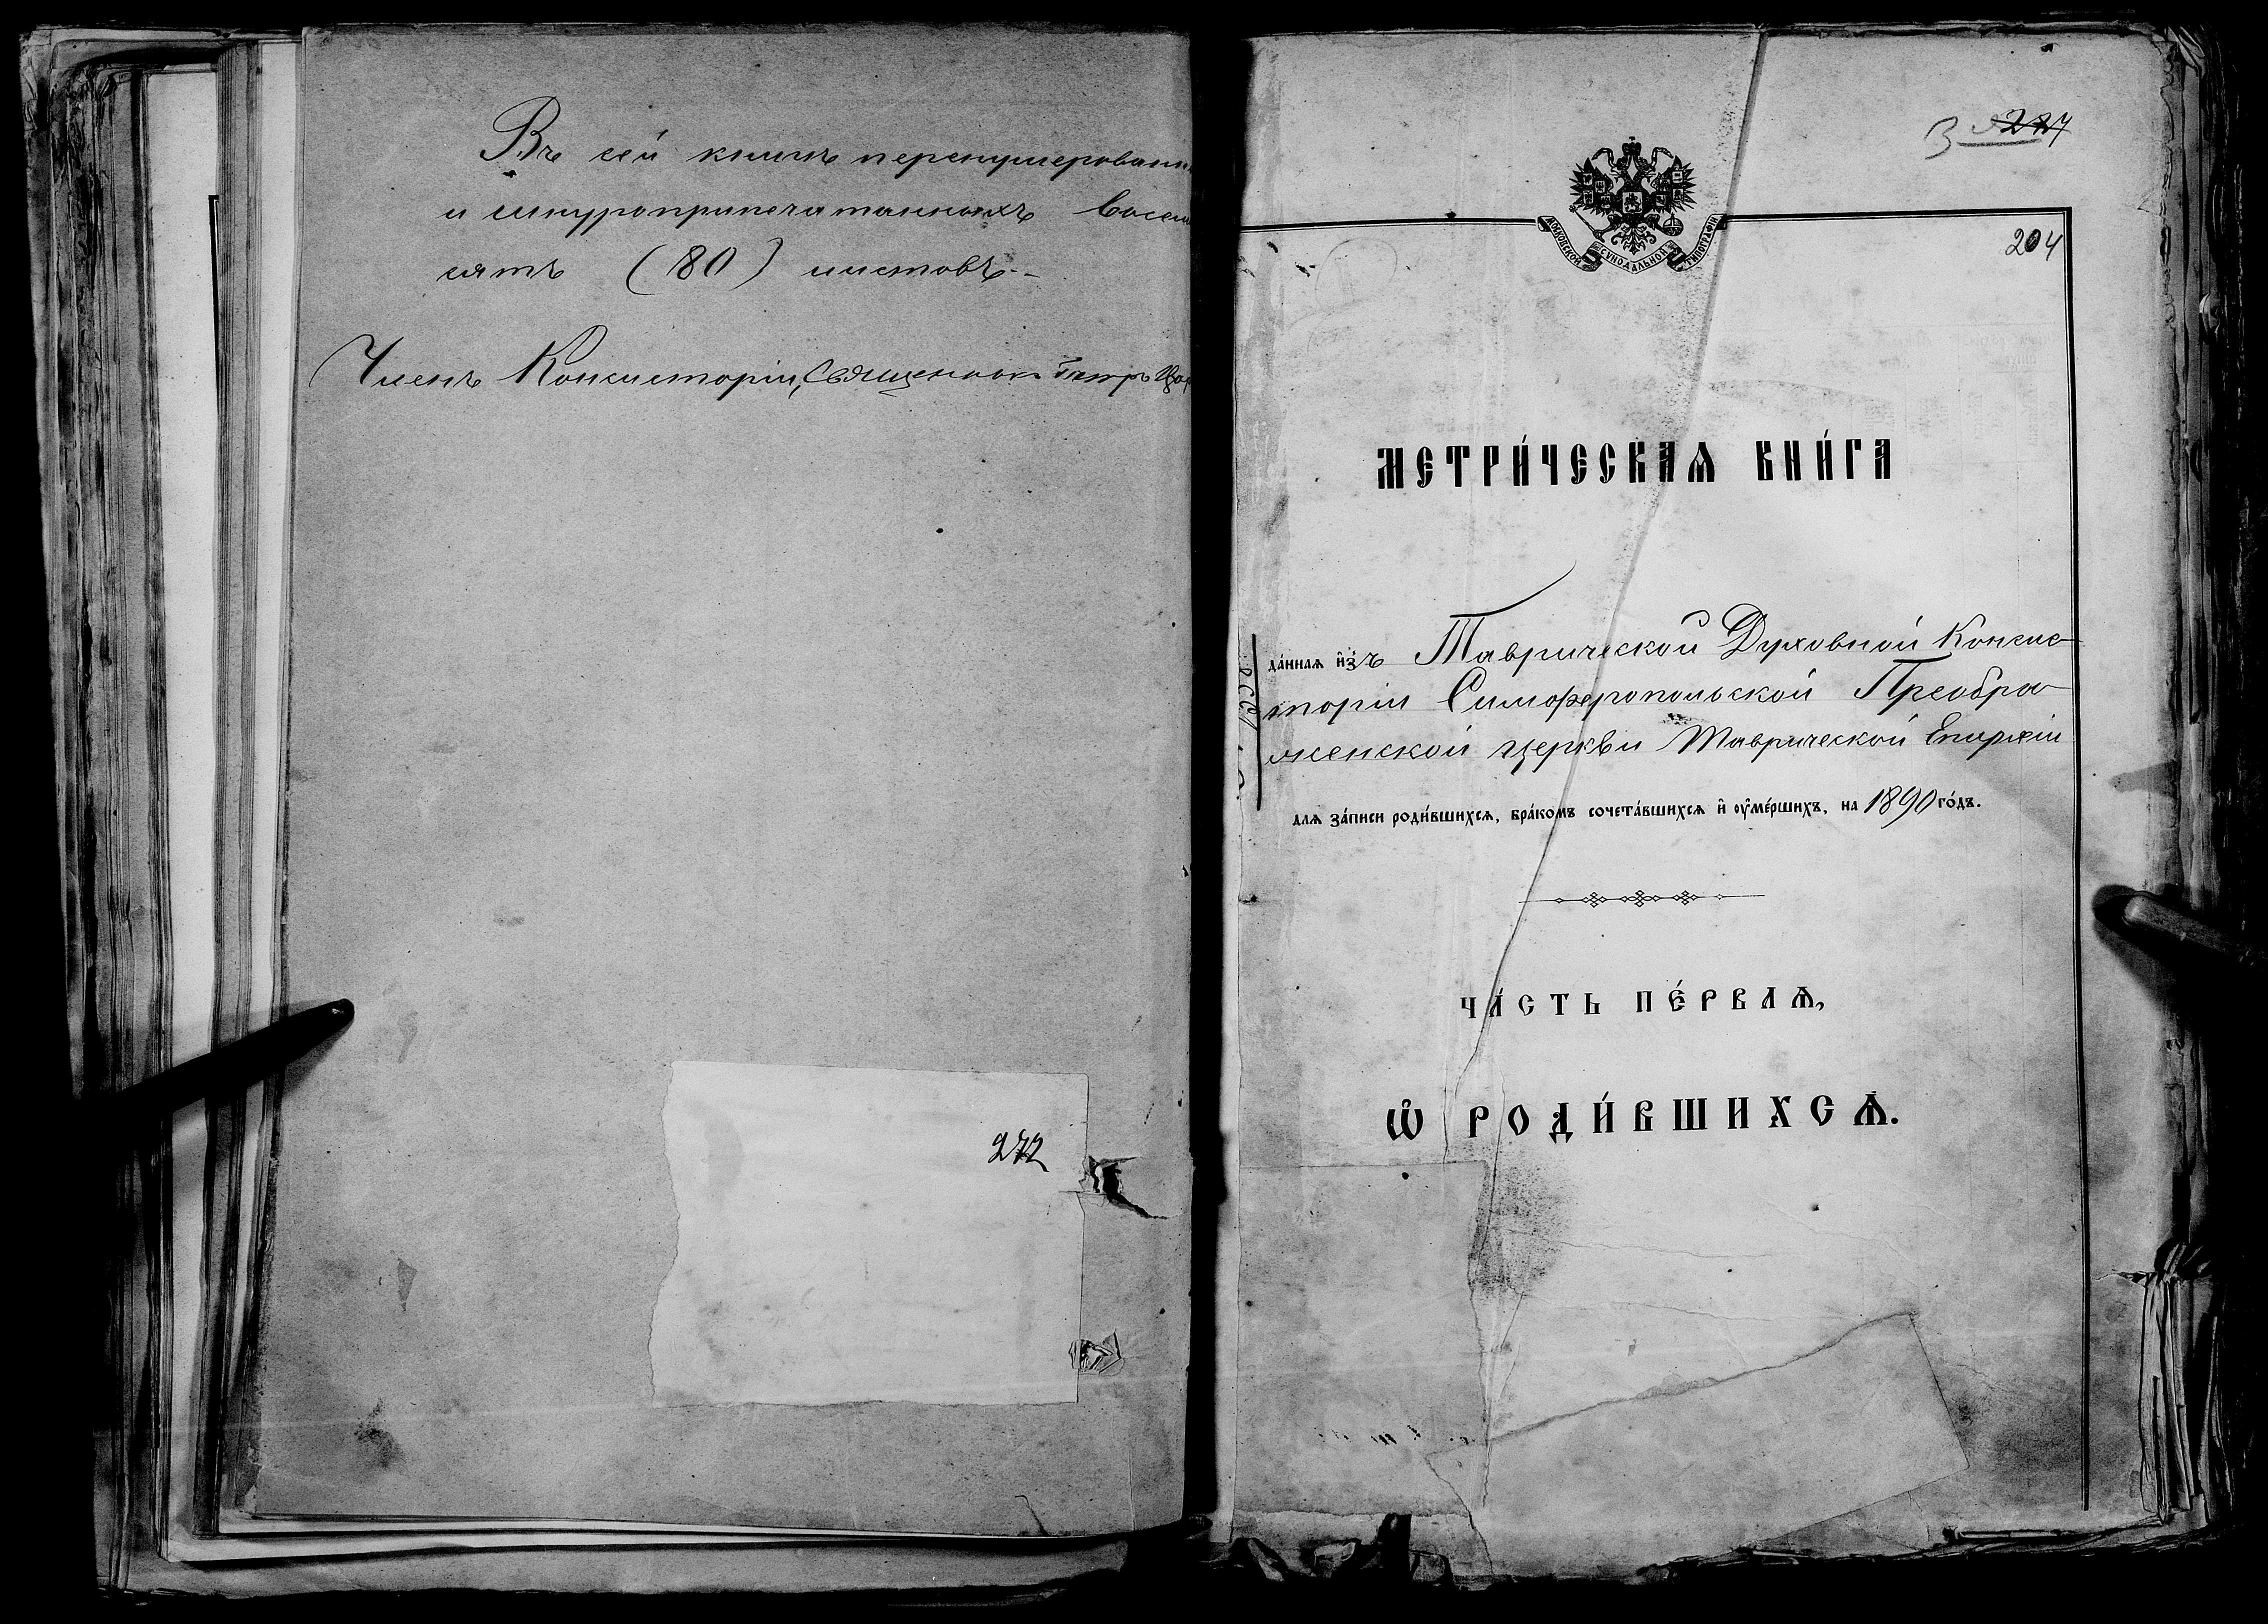 Въ сей книгѣ перенумерованн
и шнуроприпечатанныхъ восем
сятъ (80) листовъ.-
Членъ Консисторіи, Священникъ Петръ
272
227
204
МОСКОВСКОЙ СѴНОДАЛЬНОЙ ТИПОГРАФІИ
МЕТРИ́ЧЕСКАѦ КНИ́ГА
да́ннаѧ и҆з̾ъ Таврической Духовной Консис-
торіи Симферопольской Преобра-
женской церкви Таврической Епархіи
длѧ за́писи роди́вшихсѧ, бра́комъ сочета́вшихсѧ и҆ оу҆ме́ршихъ, на 1890 го́дъ.
ЧА́СТЬ ПЕ́РВАѦ,
Ѡ҆ РОДИ́ВШИХСѦ.